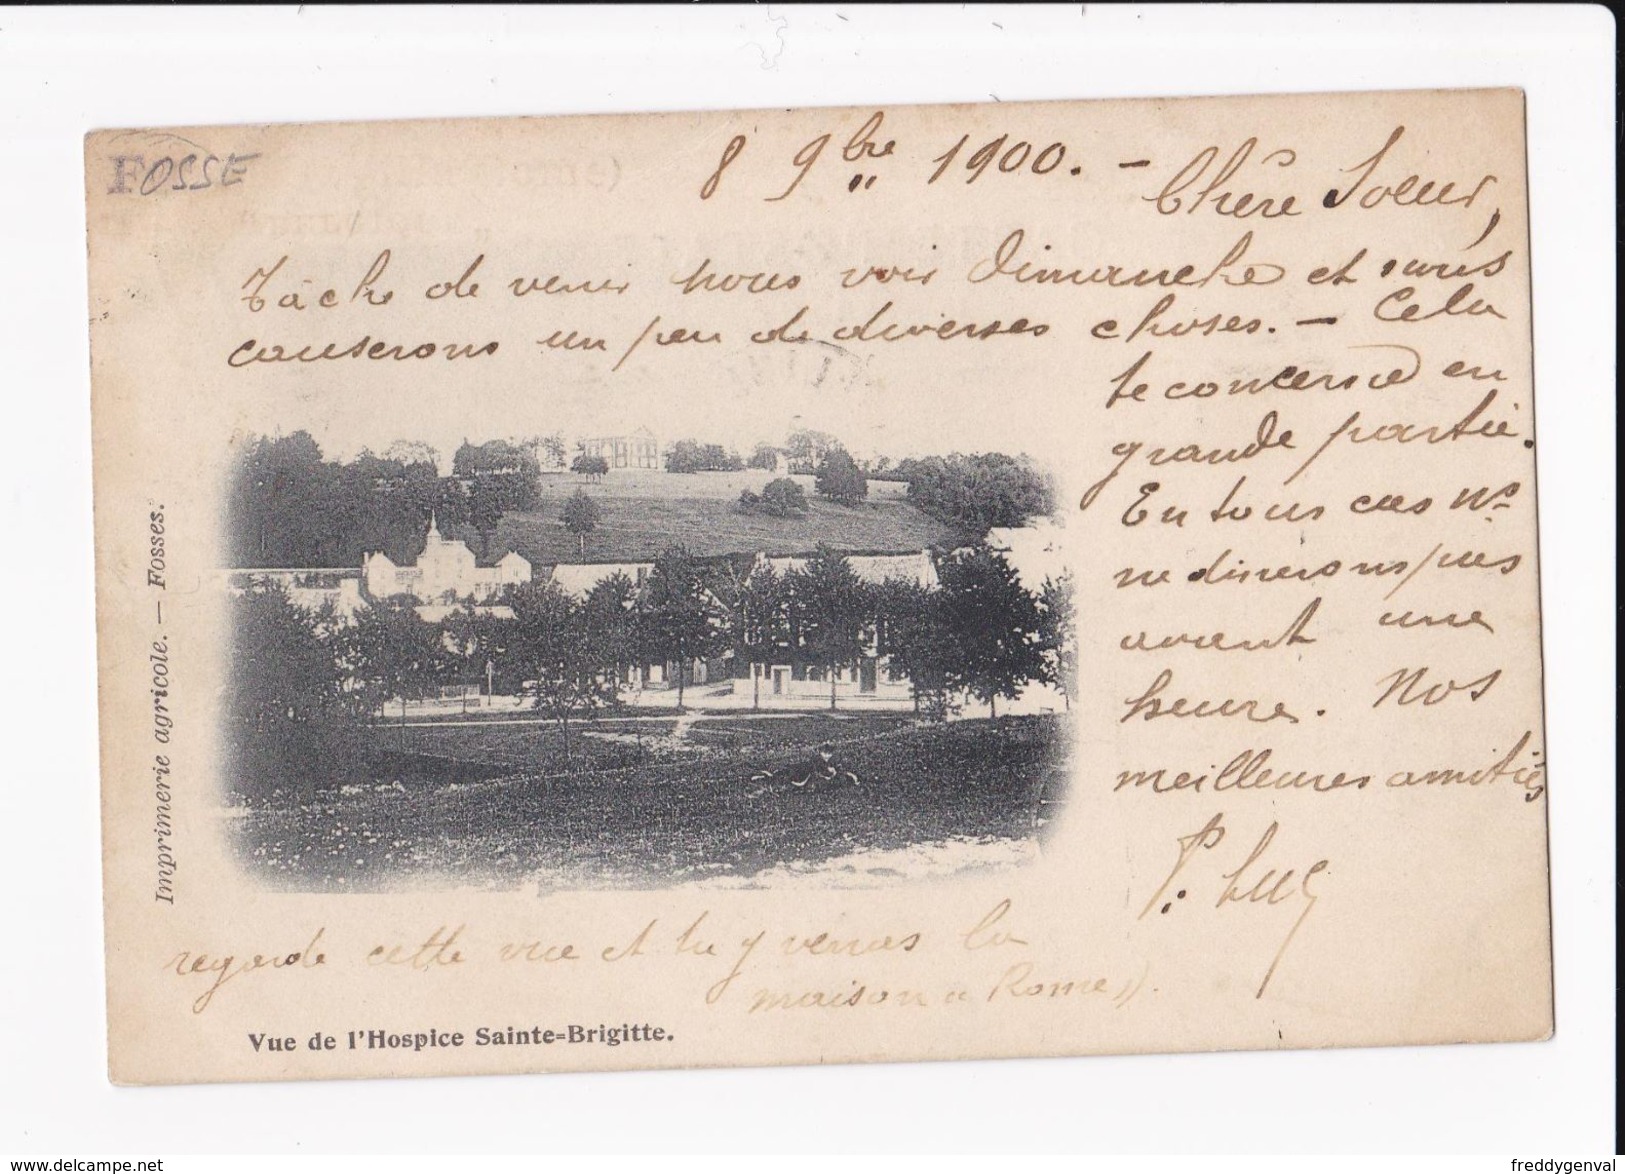 FOSSE
8 9bre 1900. -
Chère Soeur,
Tâche de venir nous voir Dimanche et nous
causerons un peu de diverses choses. - Cela
te concerne en
grande partie.
En tous cas Ns
ne dinerons pas
avant une
heure. Nos
meilleures amitiés
P.
regarde cette vue et tu y verras la
maison a Rome ».
Imprimerie agricole. — Fosses.
Vue de l'Hospice Sainte-Brigitte.
http://www.delcampe.net
freddygenval